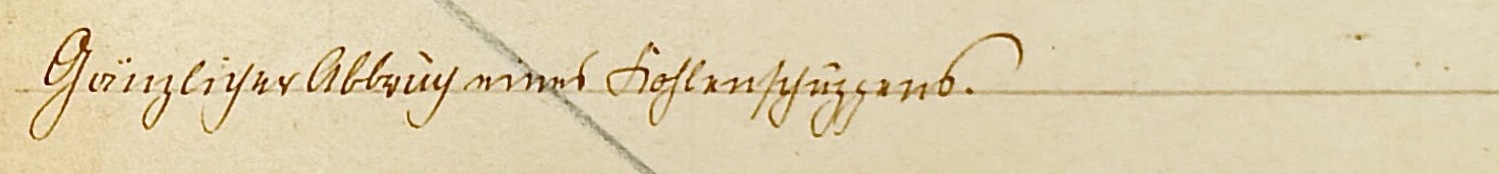 Gänzlicher Abbruch eines Kohlenschuppens.